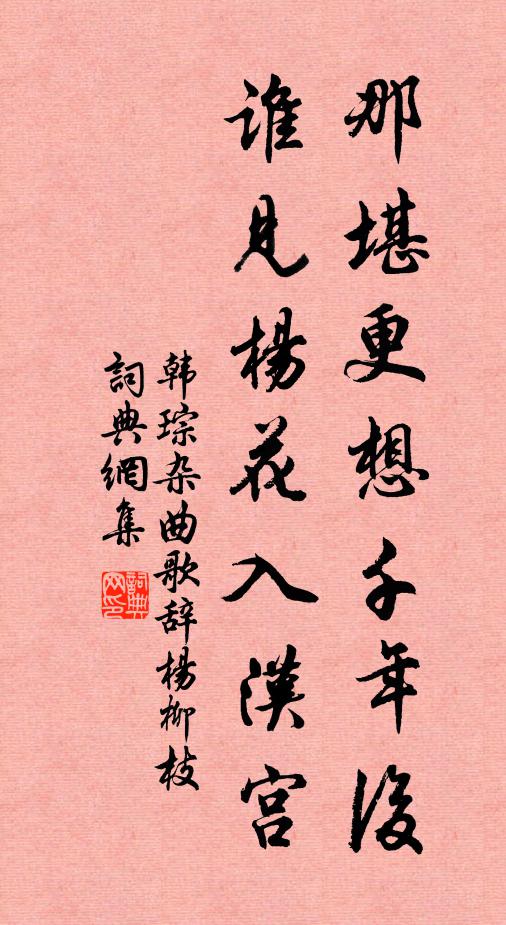 那堪更想千年後
誰見楊花入漢宮
韩琮杂曲歌辞楊柳枝
詞典網集
詞典网印